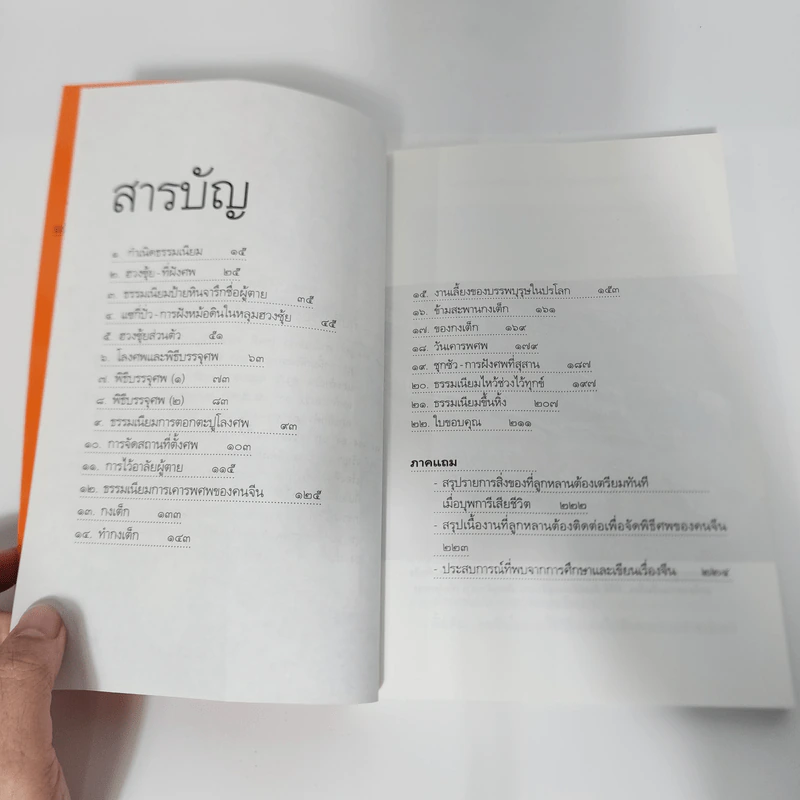 สารบัญ
๑. กำเนิดธรรมเนียม ๑๕
๒. ฮวงซุ้ย - ที่ฝังศพ ๒๕
๓. ธรรมเนียมป้ายหินจารึกชื่อผู้ตาย ๓๕
๔. แซกีบิว - การฝังหม้อดินในหลุมฮวงซุ้ย ๔๕
๕. ฮวงซุ้ยส่วนตัว ๕๑
๖. โลงศพและพิธีบรรจุศพ ๖๓
๗. พิธีบรรจุศพ (๑) ๗๓
๘. พิธีบรรจุศพ (๒) ๘๓
๙. ธรรมเนียมการตอกตะปูโลงศพ ๙๓
๑๐. การจัดสถานที่ตั้งศพ ๑๐๓
๑๑. การไว้อาลัยผู้ตาย ๑๑๕
๑๒. ธรรมเนียมการเคารพศพของคนจีน ๑๒๕
๑๓. กงเต็ก ๑๓๓
๑๔. ทำกงเต็ก ๑๔๓
๑๕. งานเลี้ยงของบรรพบุรุษในปรโลก ๑๕๓
๑๖. ข้ามสะพานกงเต็ก ๑๖๑
๑๗. ของกงเต็ก ๑๖๙
๑๘. วันเคารพศพ ๑๗๙
๑๙. ชุกซัว - การฝังศพที่สุสาน ๑๘๗
๒๐. ธรรมเนียมไหว้ช่วงไว้ทุกข์ ๑๙๗
๒๑. ธรรมเนียมขึ้นหิ้ง ๒๐๗
๒๒. ใบขอบคุณ ๒๑๑
ภาคแถม
- สรุปรายการสิ่งของที่ลูกหลานต้องเตรียมทันที
เมื่อบุพการีเสียชีวิต ๒๒๒
- สรุปเนื้องานที่ลูกหลานต้องติดต่อเพื่อจัดพิธีศพของคนจีน
๒๒๓
- ประสบการณ์ที่พบจากการศึกษาและเขียนเรื่องจีน ๒๒๔